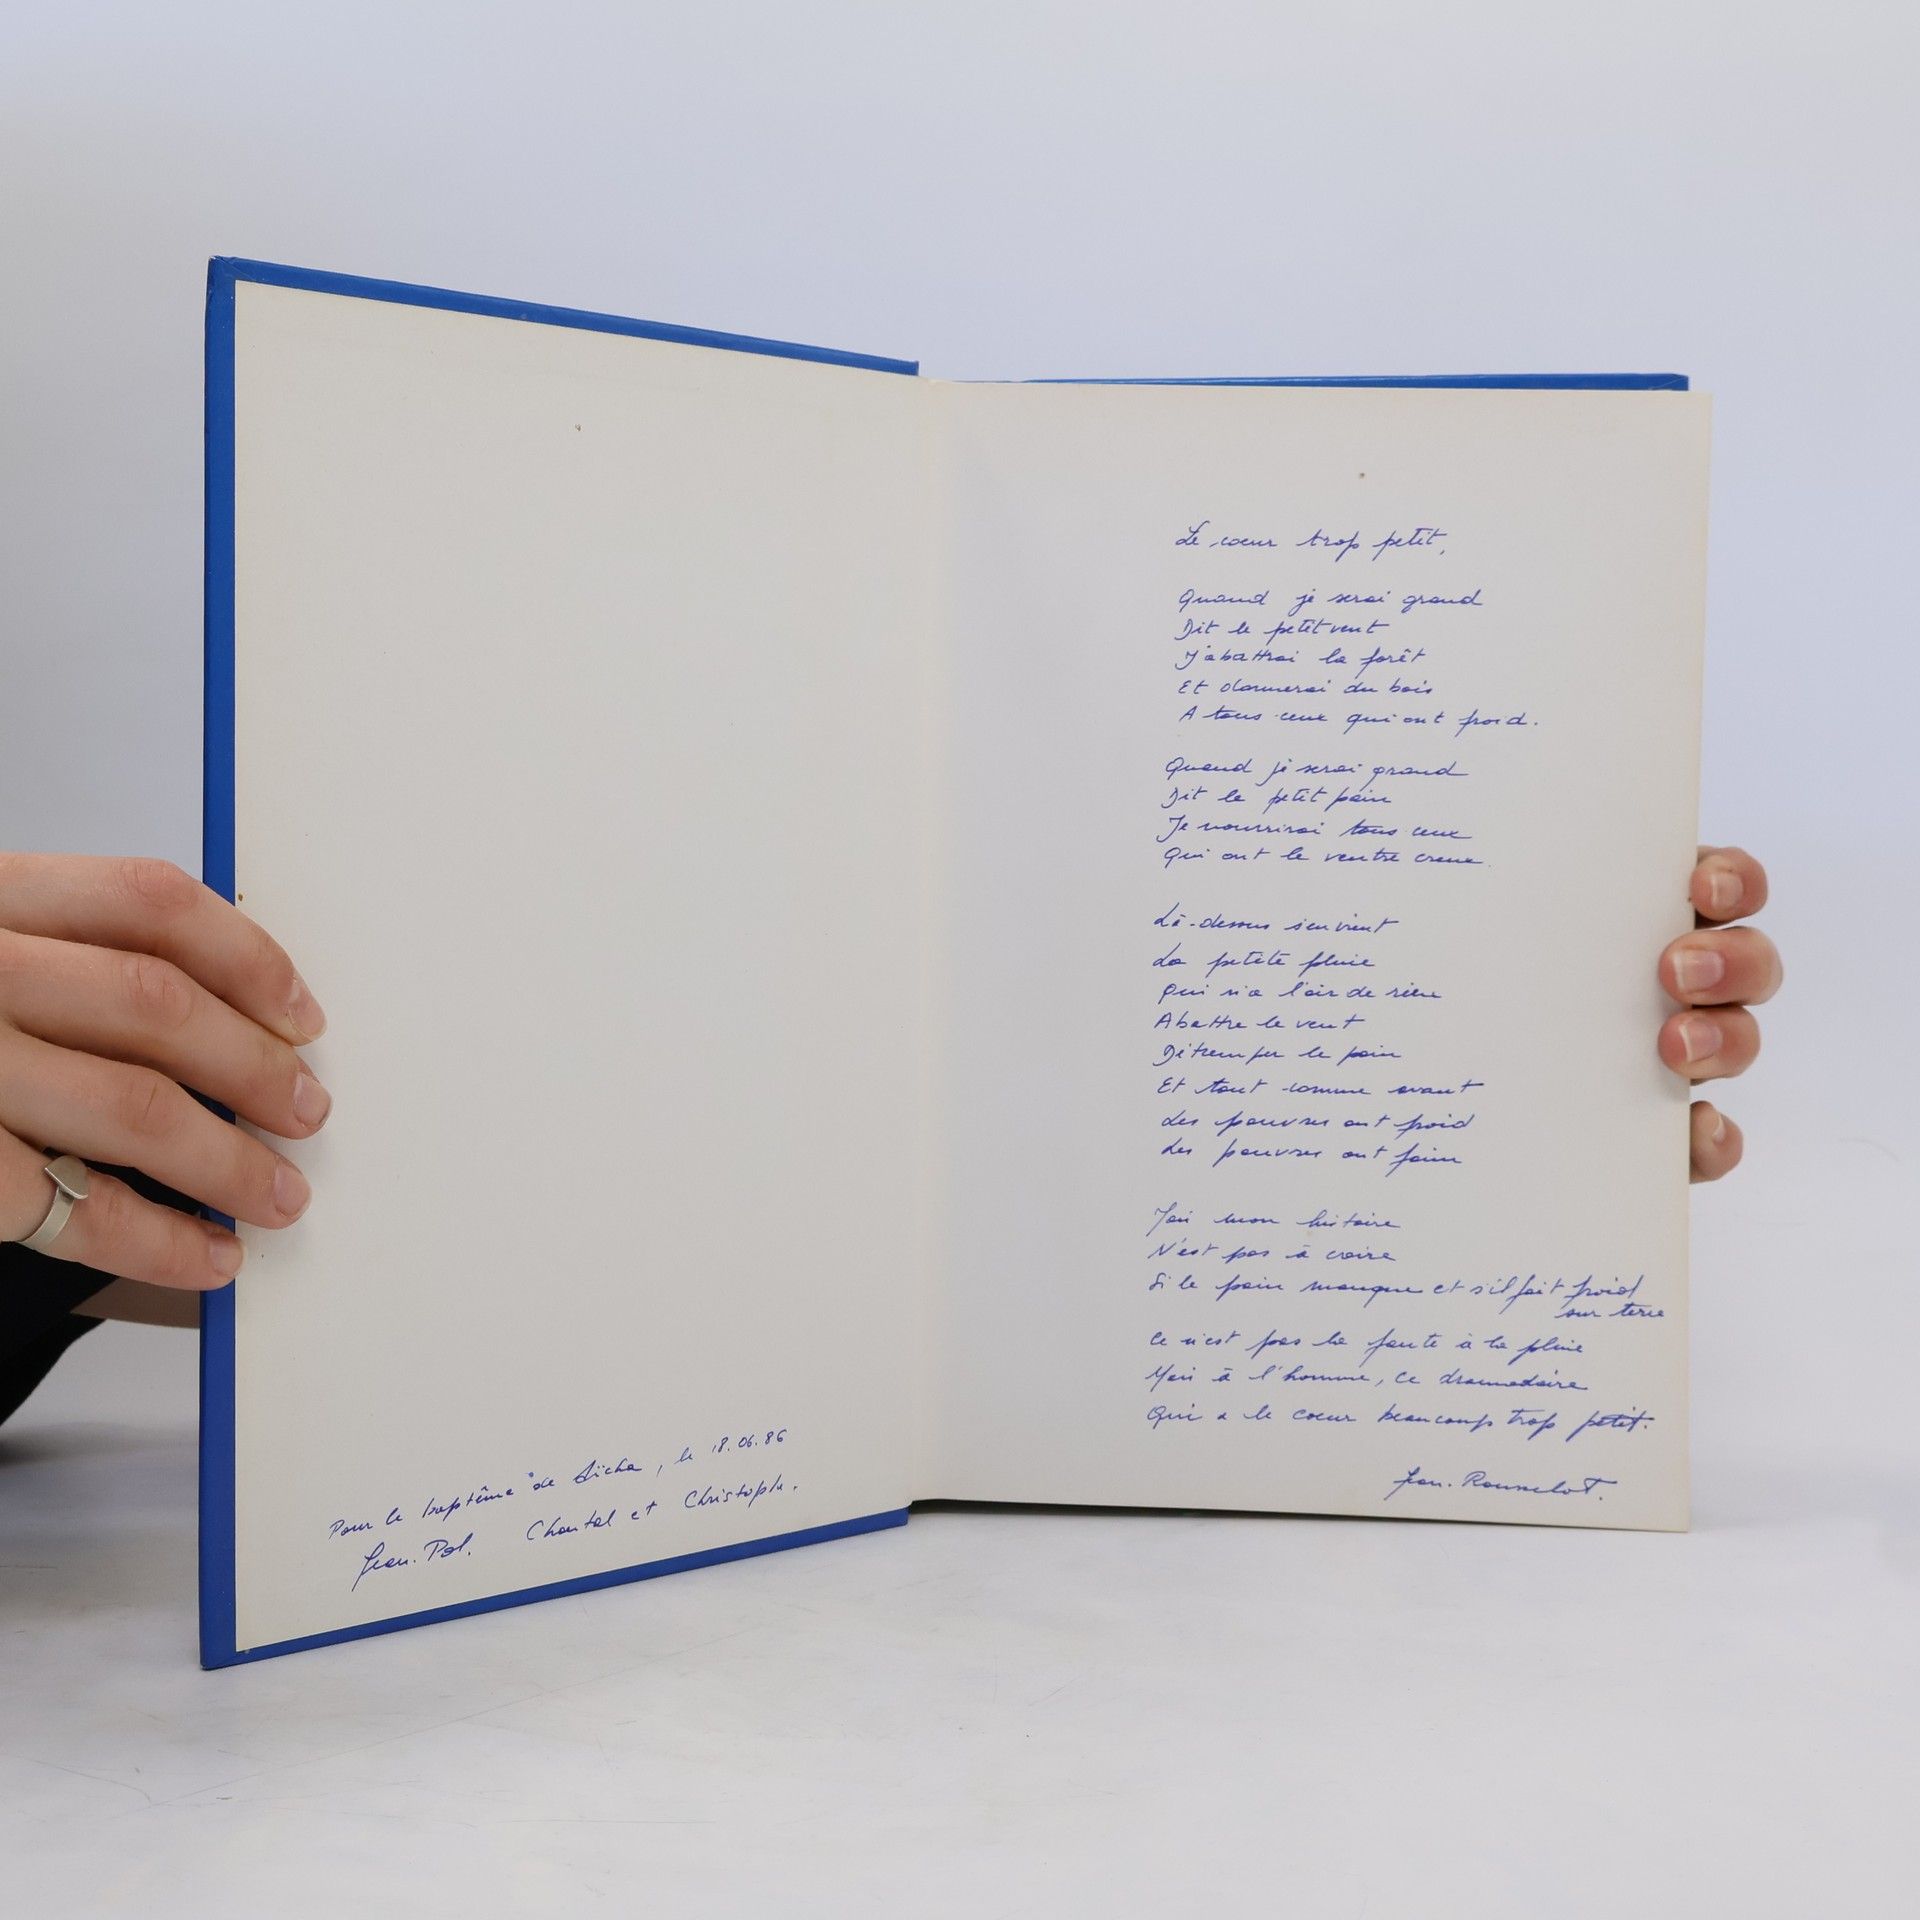 Pour le baptême de Aïcha, le 18.06.86
Jean-Pol. Chantal et Christophe.
Le coeur trop petit,
Quand je serai grand
Dit le petit vent
J'abattrai la forêt
Et donnerai du bois
A tous ceux qui ont froid.
Quand je serai grand
Dit le petit pain
Je nourrirai tous ceux
Qui ont le ventre creux.
Là-dessus s'en vient
La petite pluie
Qui n'a l'air de rien
Abattre le vent
Détremper le pain
Et tout comme avant
Les pauvres ont froid
Les pauvres ont faim
Mais mon histoire
N'est pas à croire
Si le pain manque et s'il fait froid
sur terre
Ce n'est pas la faute à la pluie
Mais à l'homme, ce dromadaire
Qui a le coeur beaucoup trop petit.
Jean. Rousselot.